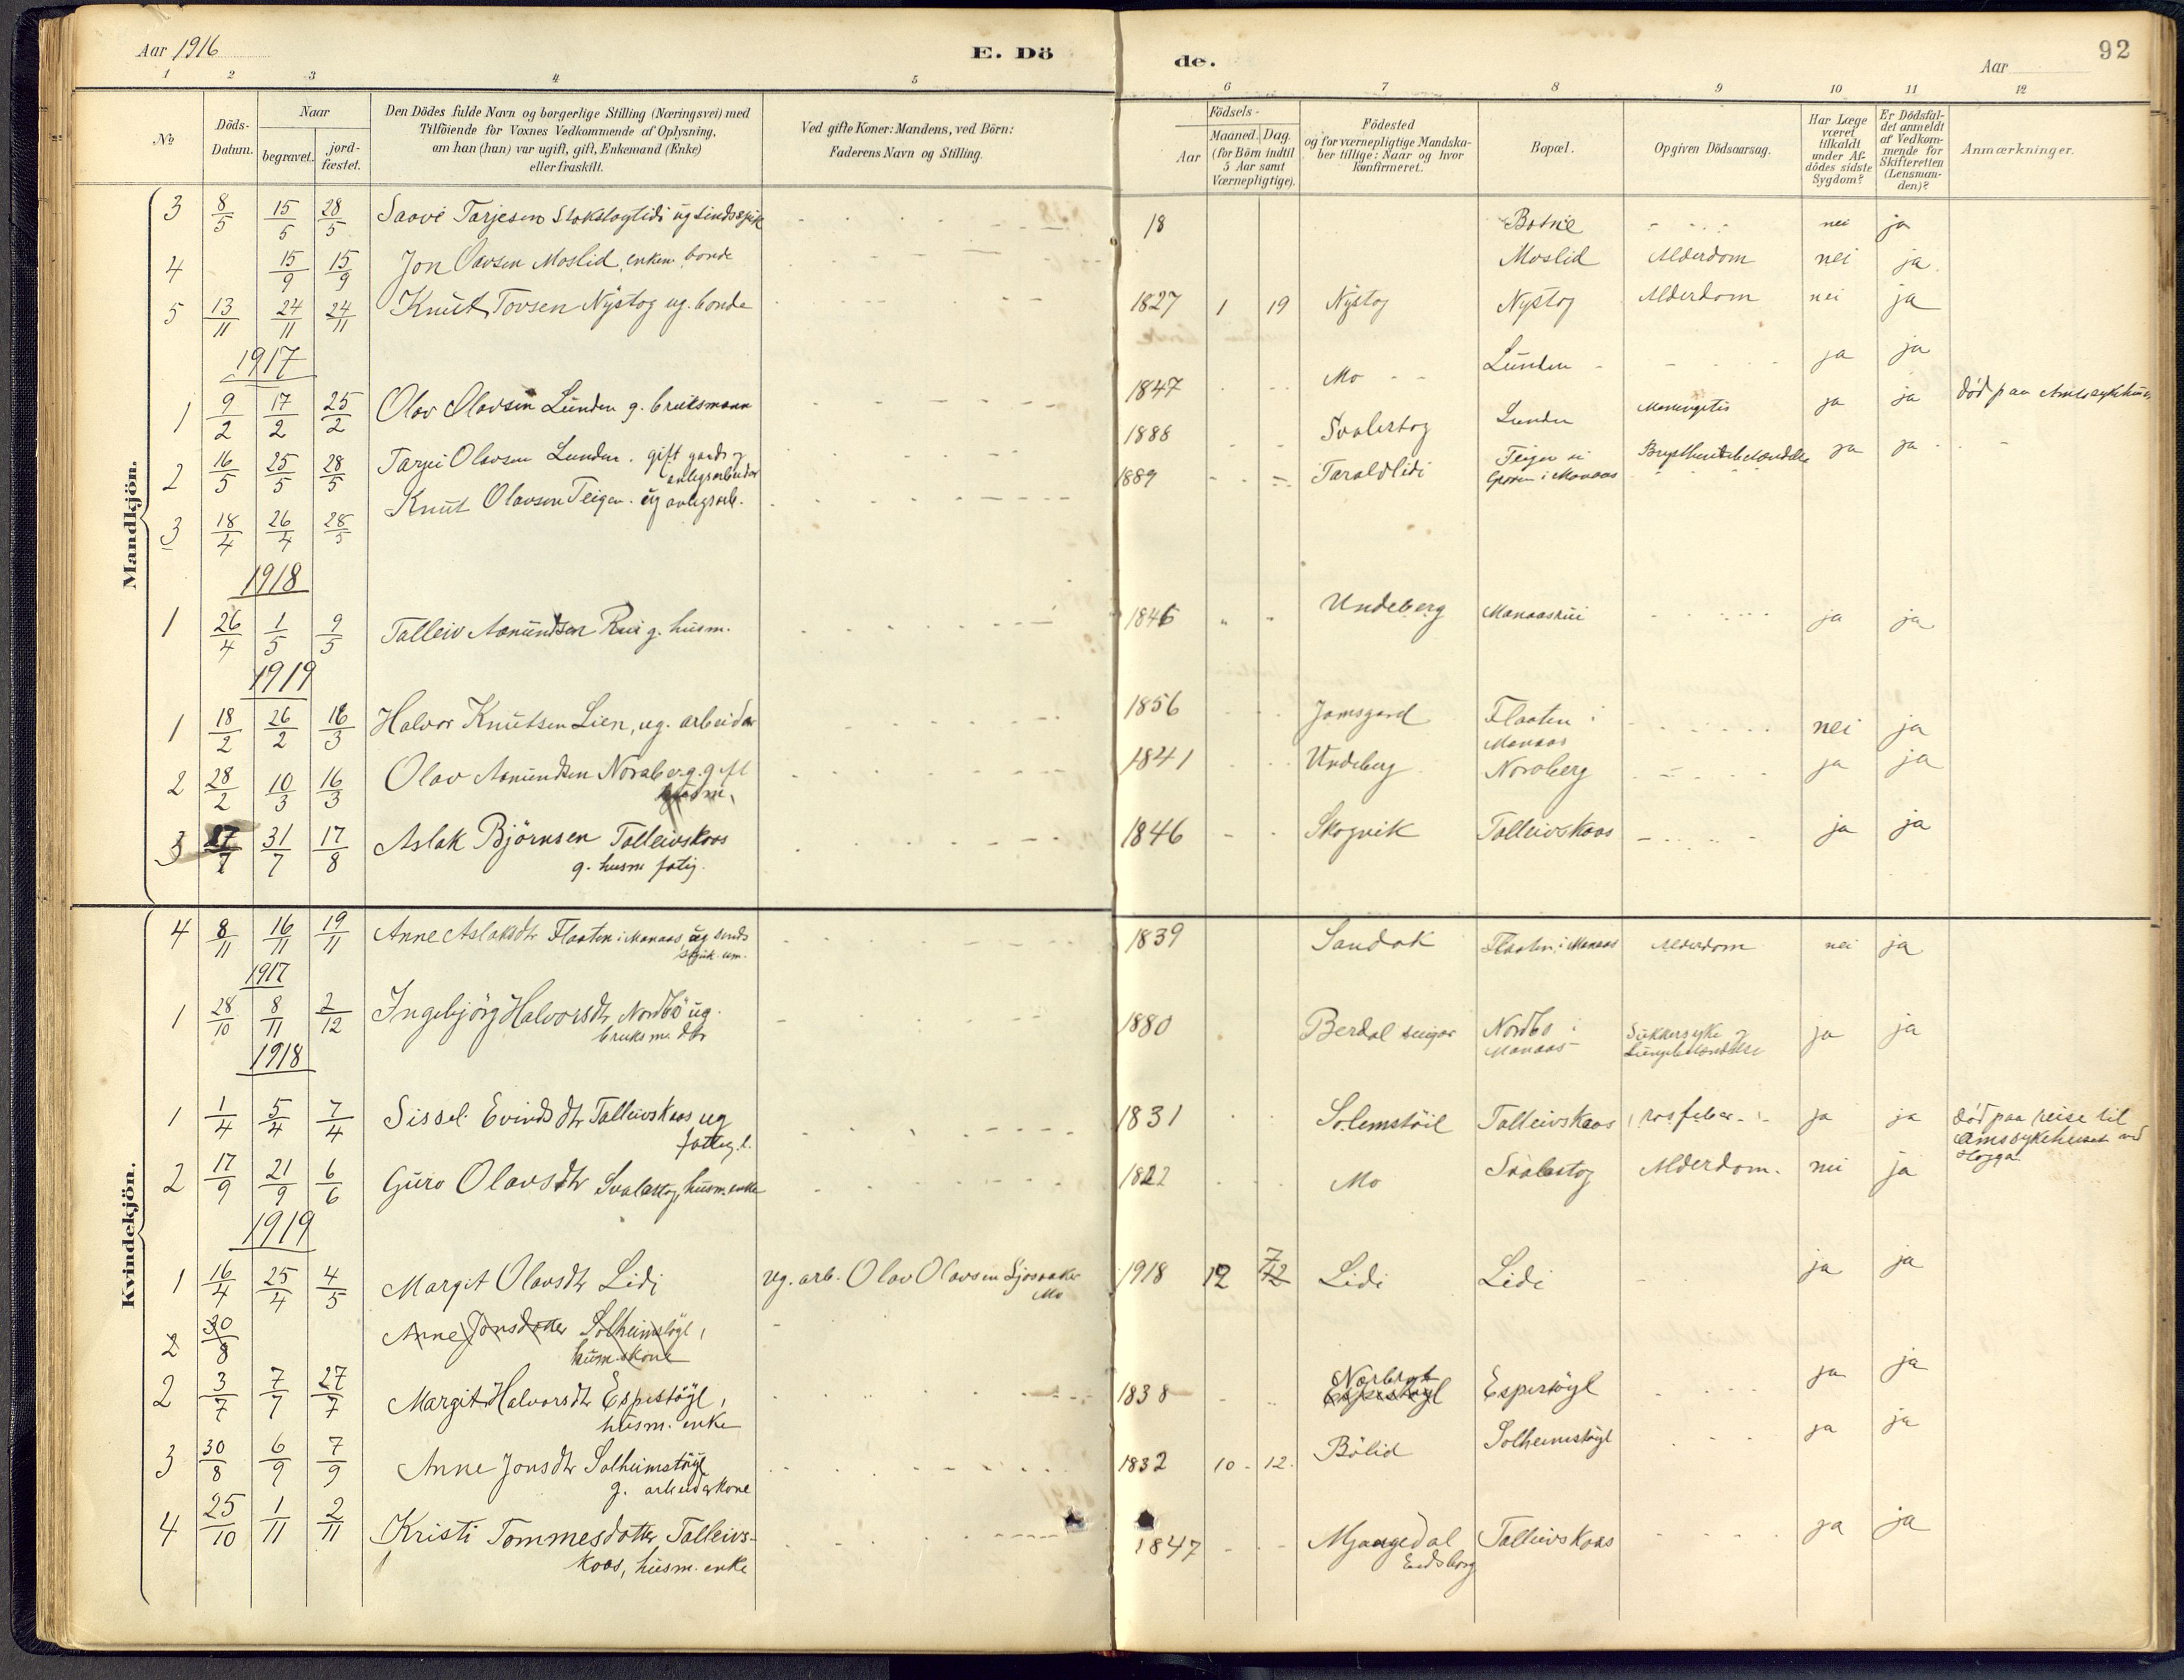 Aar 1916
E. Dö
de.
Aar
92
1 2 3 4 5 6 7 8 9 10 11 12
No
Döds-Datum.
Naar
begravet.
jord-fæstet.
Den Dödes fulde Navn og borgerlige Stilling (Næringsvei) med
Tilföiende for Voxnes Vedkommende af Oplysning,
om han (hun) var ugift, gift, Enkemand (Enke)
eller fraskilt.
Ved gifte Koner: Mandens, ved Börn:
Faderens Navn og Stilling.
Födsels-
Aar
Maaned. Dag.
(for Börn indtil
5 Aar samt
Værnepligtige).
Födested
og for værnepligtige Mandska-
ber tillige: Naar og hvor
Konfirmeret.
Bopæl.
Opgiven Dödsaarsag.
Har Læge
været
tilkaldt
under Af-
dödes sidste
Sygdom?
Er Dödsfal-
det anmeldt
af Vedkom-
mende for
Skifteretten
(Lensman-
den)?
Anmærkninger.
Mandkjön.
3 8/5 15/5 28/5 Saave Tarjesen ug sindssyk 18 nei ja
4 15/9 15/9 Jon Olavsen Moslid, enkem. bonde Moslid Alderdom nei ja.
5 13/11 24/11 24/11 Knut Tovsen Nystog ug. bonde 1827 1 19 Nystog Nystog Alderdom nei ja
1917
1 9/2 17/2 25/2 Olav Olavsen Lunden g. bruksmann 1847 Mo Lunden ja ja
2 16/5 25/5 28/5 Tarjei Olavsen Lunden. gift gards og
anlegsarbeidar 1888 Svalestog Lunden Meningitis ja ja död paa Amtssykehus
3 18/4 26/4 28/5 Knut Olavsen Teigen. ug anlegsarb. 1889 Taraldlidi Teigen i
Manaas ja ja
1918
1 26/4 1/5 9/5 Talleiv Aamundsen Rui g. husm. 1846 Undeberg Manaasrui ja ja
1919
1 18/2 26/2 16/3 Halvor Knutsen Lien, ug. arbeidar 1856 Jamsgard Flaaten i
Manaas nei ja
2 28/2 10/3 16/3 Olav Aamundsen Noraberg. gift
husm. 1841 Undeberg Noraberg ja ja
3 17/7 31/7 17/8 Aslak Björnsen Talleivskaas
g. husm fatig. 1846 Skogvik Talleivskaas ja ja
Kvindekjön.
4 8/11 16/11 19/11 Anne Aslaksdtr Flaaten i Manaas, ug sinds
sjuk 1839 Sandok Flaaten i Manaas Alderdom nei ja
1917
1 28/10 8/11 2/12 Ingebjörg Halvorsdtr Nordbö ug.
bruksm. dtr 1880 Berdal Nordbö i
Manaas Sukkersyke og
Lungebetændelse ja ja
1918
1 1/4 5/4 7/4 Sissel Evindsdtr Talleivskaas ug
fattigl. 1831 Solemstöil Talleivskaas rosfeber ja ja död paa reise til
Amtssykehuset ved
Hogga
2 17/9 21/9 6/6 Guro Olavsdtr Svalestog, husm. enke 1822 Mo Svalestog Alderdom. nei ja
1919
1 16/4 25/4 4/5 Margit Olavsdtr Lidi ug. arb. Olav Olavsen
Mo 1918 12 7 Lidi Lidi ja ja
2 30/8 Anne Jonsdotter Solheimstöyl,
husm. kone
2 3/7 7/7 27/7 Margit Halvorsdtr Espestöyl,
husm. enke 1838 Espestöyl Espestöyl ja ja
3 30/8 6/9 7/9 Anne Jonsdtr Solheimstöyl
g. arbeidarkone 1832 10 12 Bölid Solheimstöyl ja ja
4 25/10 1/11 2/11 Kristi Tommesdotter Talleivs-
kaas, husm. enke 1847 Mjaugedal
Eidsborg Talleivskaas ja ja